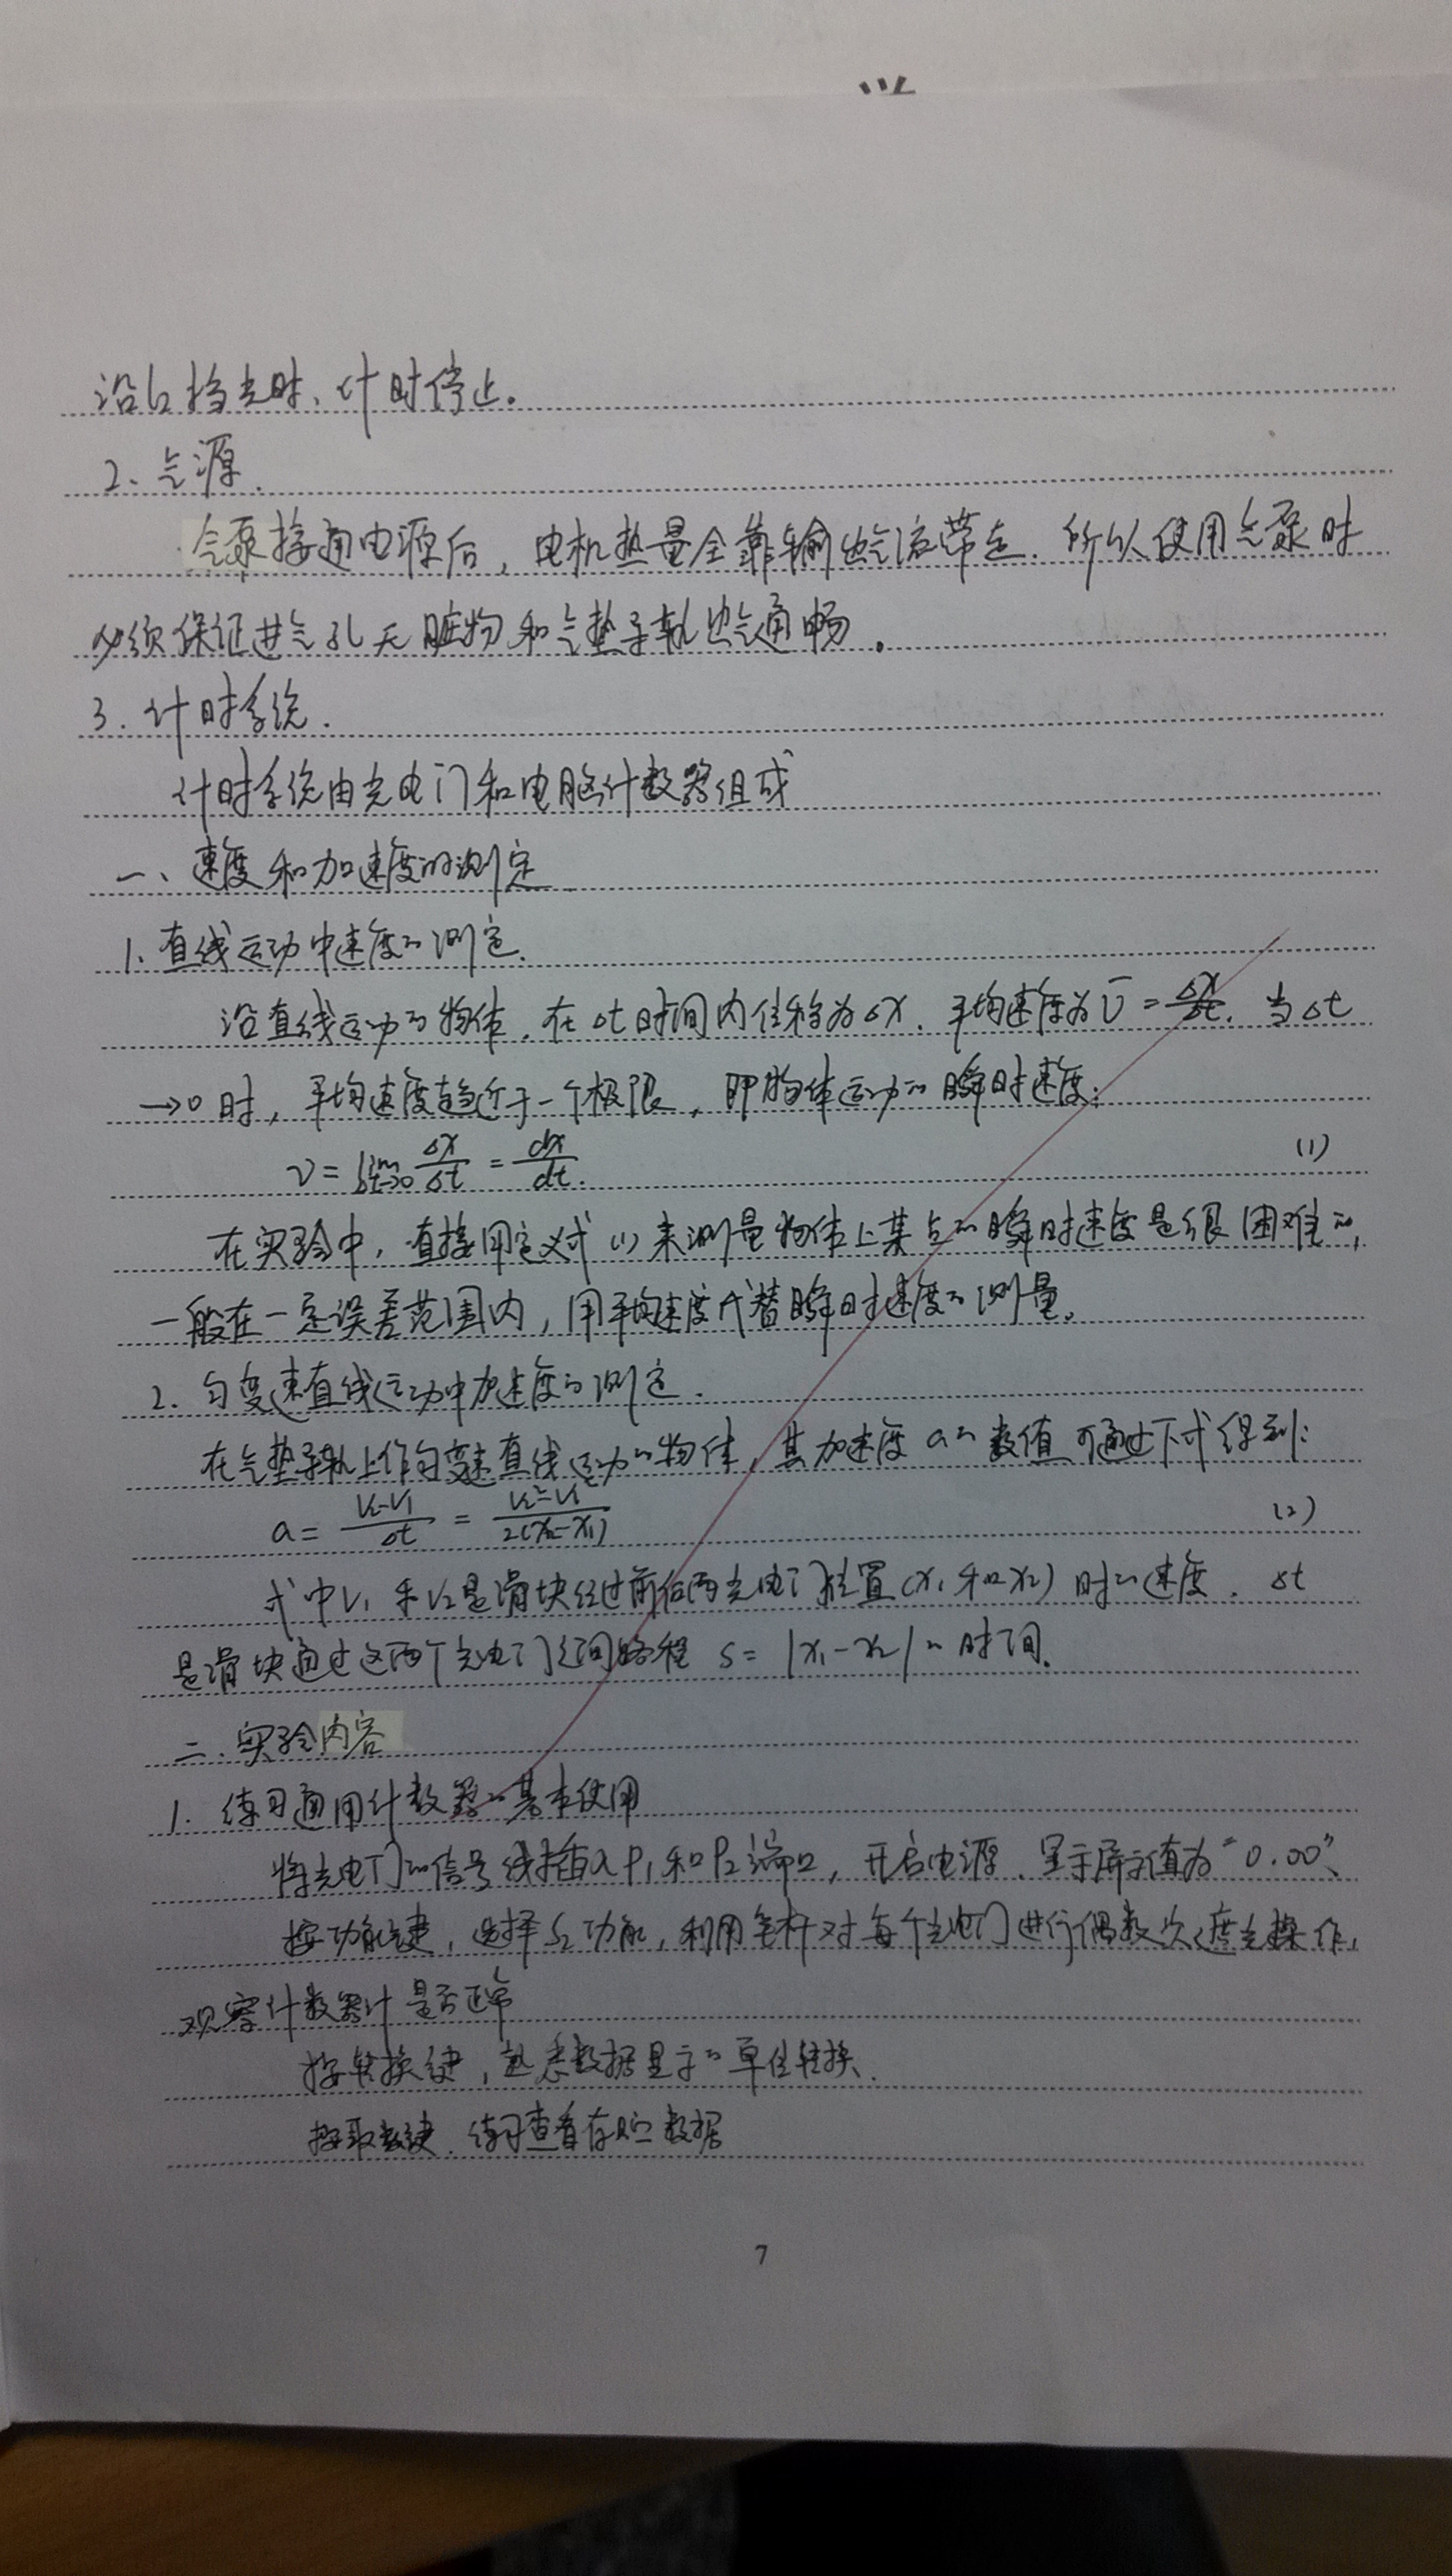 沿b挡光时、计时停止。
2、气源.
气泵接通电源后，电机热量全靠输出气流带走.所以使用气泵时
必须保证进气孔无脏物和气垫导轨出气通畅。
3.计时系统.
计时系统由光电门和电脑计数器组成
一、速度和加速度的测定
1、直线运动中速度的测定.
沿直线运动的物体.在Δt时间内位移为Δx.平均速度为v̄=Δx/Δt.当Δt
→0时，平均速度趋近于一个极限，即物体运动的瞬时速度：
v=lim Δt→0 Δx/Δt=dx/dt. (1)
在实验中，直接用定义式(1)来测量物体上某点的瞬时速度是很困难的，
一般在一定误差范围内，用平均速度代替瞬时速度的测量。
2.匀变速直线运动中加速度的测定.
在气垫导轨上作匀变速直线运动的物体，其加速度a的数值可通过下式得到：
a=(v₂-v₁)/Δt=(v₂²-v₁²)/2(x₂-x₁) (2)
式中v₁和v₂是滑块经过前后两光电门位置(x₁和x₂)时的速度.Δt
是滑块通过这两个光电门之间路程s=|x₁-x₂|的时间.
二.实验内容
1.练习通用计数器的基本使用
将光电门的信号线插入P₁和P₂端口，开启电源.显示屏示值为“0.00”、
按功能键，选择S₂功能，利用笔杆对每个光电门进行偶数次遮光操作，
观察计数器计是否正常
按转换键，熟悉数据显示的单位转换.
按取数键.练习查看存贮数据
7